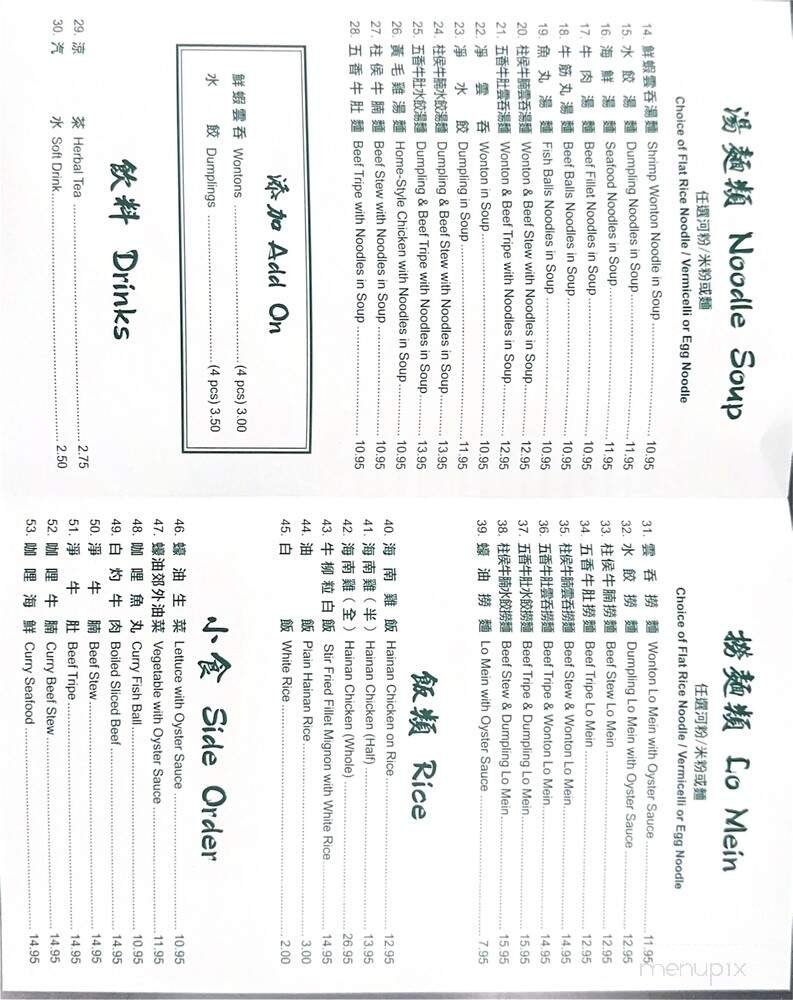 湯麵類 Noodle Soup
任選河粉/米粉或麵
Choice of Flat Rice Noodle / Vermicelli or Egg Noodle
14. 鮮蝦雲吞湯麵 Shrimp Wonton Noodle in Soup 10.95
15. 水餃湯麵 Dumpling Noodles in Soup 11.95
16. 海鮮湯麵 Seafood Noodles in Soup 11.95
17. 牛肉湯麵 Beef Fillet Noodles in Soup 10.95
18. 牛筋丸湯麵 Beef Balls Noodles in Soup 10.95
19. 魚丸湯麵 Fish Balls Noodles in Soup 10.95
20. 柱侯牛腩雲吞湯麵 Wonton & Beef Stew with Noodles in Soup 12.95
21. 五香牛肚雲吞湯麵 Wonton & Beef Tripe with Noodles in Soup 12.95
22. 凈雲吞 Wonton in Soup 10.95
23. 凈水餃 Dumpling in Soup 11.95
24. 柱侯牛腩水餃湯麵 Dumpling & Beef Stew with Noodles in Soup 13.95
25. 五香牛肚水餃湯麵 Dumpling & Beef Tripe with Noodles in Soup 13.95
26. 黃毛雞湯麵 Home-Style Chicken with Noodles in Soup 10.95
27. 柱侯牛腩麵 Beef Stew with Noodles in Soup 10.95
28. 五香牛肚麵 Beef Tripe with Noodles in Soup 10.95
添加 Add On
鮮蝦雲吞 Wontons (4 pcs) 3.00
水餃 Dumplings (4 pcs) 3.50
飲料 Drinks
29. 涼茶 Herbal Tea 2.75
30. 汽水 Soft Drink 2.50
撈麵類 Lo Mein
任選河粉/米粉或麵
Choice of Flat Rice Noodle / Vermicelli or Egg Noodle
31. 雲吞撈麵 Wonton Lo Mein with Oyster Sauce 11.95
32. 水餃撈麵 Dumpling Lo Mein with Oyster Sauce 12.95
33. 柱侯牛腩撈麵 Beef Stew Lo Mein 12.95
34. 五香牛肚撈麵 Beef Tripe Lo Mein 12.95
35. 柱侯牛腩雲吞撈麵 Beef Stew & Wonton Lo Mein 14.95
36. 五香牛肚雲吞撈麵 Beef Tripe & Wonton Lo Mein 14.95
37. 五香牛肚水餃撈麵 Beef Tripe & Dumpling Lo Mein 15.95
38. 柱侯牛腩水餃撈麵 Beef Stew & Dumpling Lo Mein 15.95
39. 蠔油撈麵 Lo Mein with Oyster Sauce 7.95
飯類 Rice
40. 海南雞飯 Hainan Chicken on Rice 12.95
41. 海南雞(半) Hainan Chicken (Half) 13.95
42. 海南雞(全) Hainan Chicken (Whole) 26.95
43. 牛柳粒白飯 Stir Fried Fillet Mignon with White Rice 14.95
44. 油飯 Plain Hainan Rice 3.00
45. 白飯 White Rice 2.00
小食 Side Order
46. 蠔油生菜 Lettuce with Oyster Sauce 10.95
47. 蠔油郊外油菜 Vegetable with Oyster Sauce 11.95
48. 咖哩魚丸 Curry Fish Ball 10.95
49. 白灼牛肉 Boiled Sliced Beef 14.95
50. 淨牛腩 Beef Stew 14.95
51. 淨牛肚 Beef Tripe 14.95
52. 咖哩牛腩 Curry Beef Stew 14.95
53. 咖哩海鮮 Curry Seafood 14.95
menupix